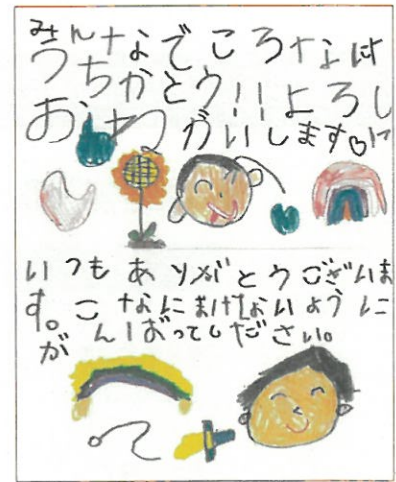 みんなでころなに
うちかとう!!よろし
おねがいします♡に
いつもありがとうございま
す。こ なにまけないように
がんばってください。